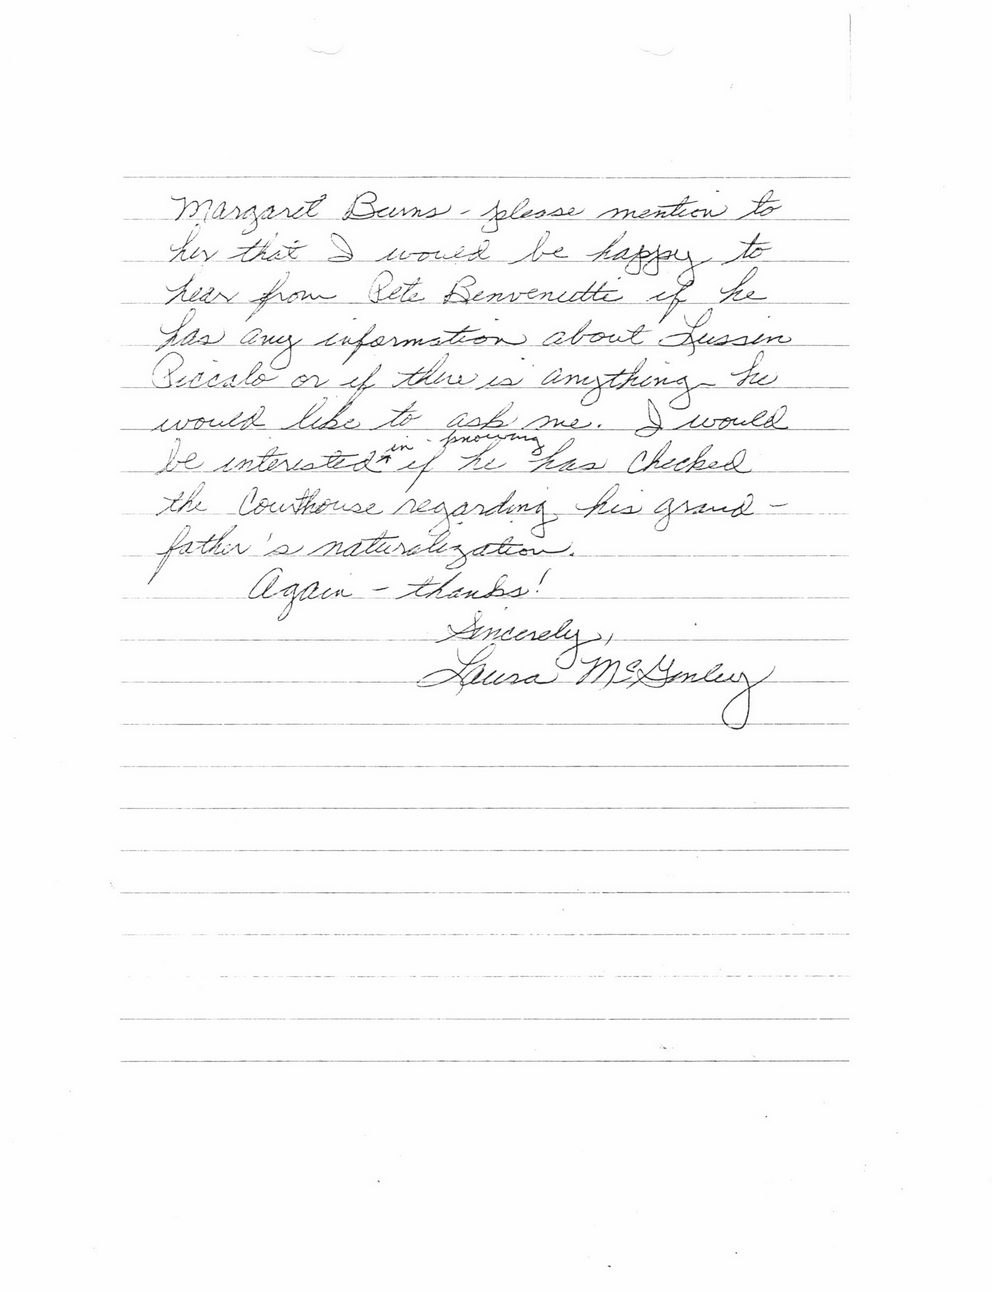 Margaret Burns - please mention to
her that I would be happy to
hear from Pete Benvenutti if he
has any information about Lussin
Piccolo or if there is anything he
would like to ask me. I would
in knowing
be interested if he has checked
the Courthouse regarding his grand-
father's naturalization.
Again - thanks!
Sincerely,
Laura McGinley